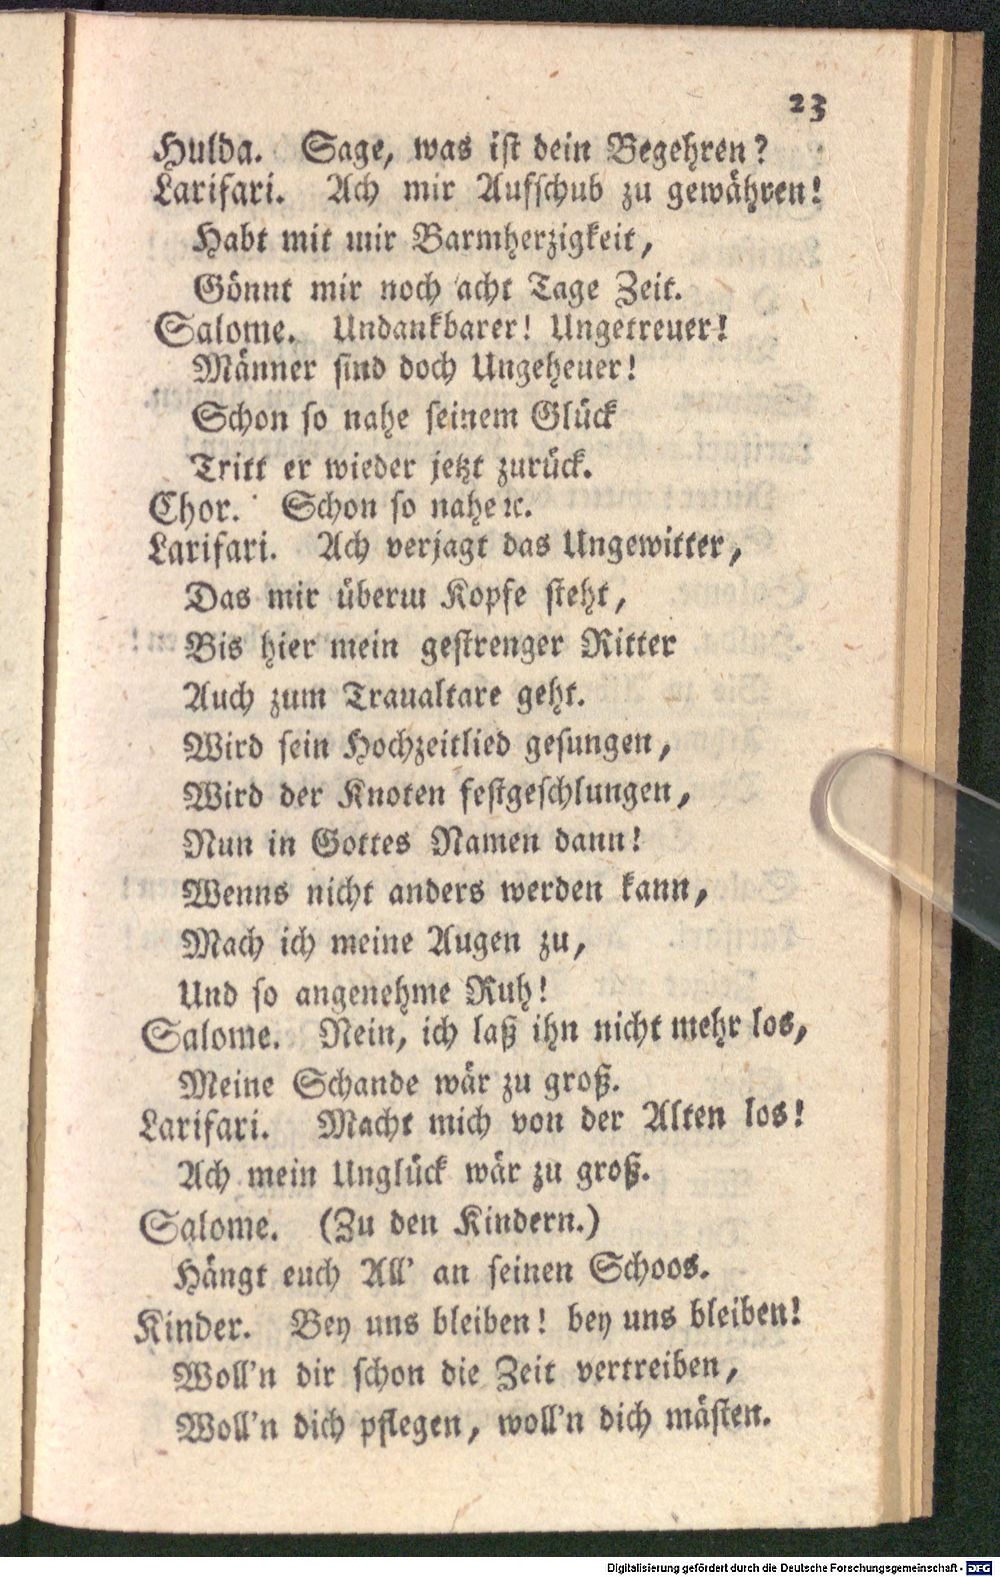 23
Hulda. Sage, was ist dein Begehren?
Larifari. Ach mir Aufschub zu gewähren!
Habt mit mir Barmherzigkeit,
Gönnt mir noch acht Tage Zeit.
Salome. Undankbarer! Ungetreuer!
Männer sind doch Ungeheuer!
Schon so nahe seinem Glück
Tritt er wieder jetzt zurück.
Chor. Schon so nahe ꝛc.
Larifari. Ach verjagt das Ungewitter,
Das mir überm Kopfe steht,
Bis hier mein gestrenger Ritter
Auch zum Traualtare geht.
Wird sein Hochzeitlied gesungen,
Wird der Knoten festgeschlungen,
Nun in Gottes Namen dann!
Wenns nicht anders werden kann,
Mach ich meine Augen zu,
Und so angenehme Ruh!
Salome. Nein, ich laß ihn nicht mehr los,
Meine Schande wär zu groß.
Larifari. Macht mich von der Alten los!
Ach mein Unglück wär zu groß.
Salome. (Zu den Kindern.)
Hängt euch All' an seinen Schoos.
Kinder. Bey uns bleiben! bey uns bleiben!
Woll'n dir schon die Zeit vertreiben,
Woll'n dich pflegen, woll'n dich mästen.
Digitalisierung gefördert durch die Deutsche Forschungsgemeinschaft - DFG